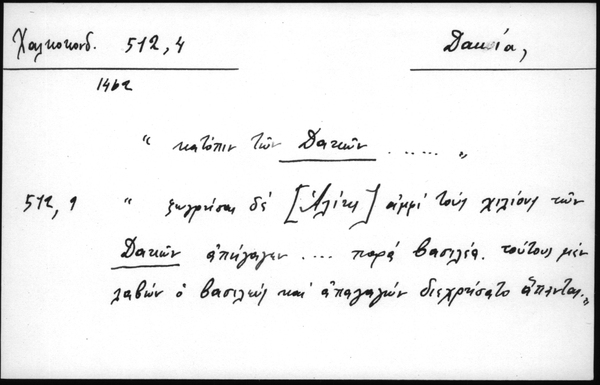 Χαλκοκονδ. 512,4 Δακία,
1462
“ κατόπιν τῶν Δακῶν ..... „
512,9 “ ζωγρήσας δὲ [Ἀλίης] ἀμφὶ τοὺς χιλίους τῶν
Δακῶν ἀπήγαγεν .... παρὰ βασιλέα. τούτους μὲν
λαβὼν ὁ βασιλεὺς καὶ ἀπαγαγὼν διεχρήσατο ἅπαντας.„